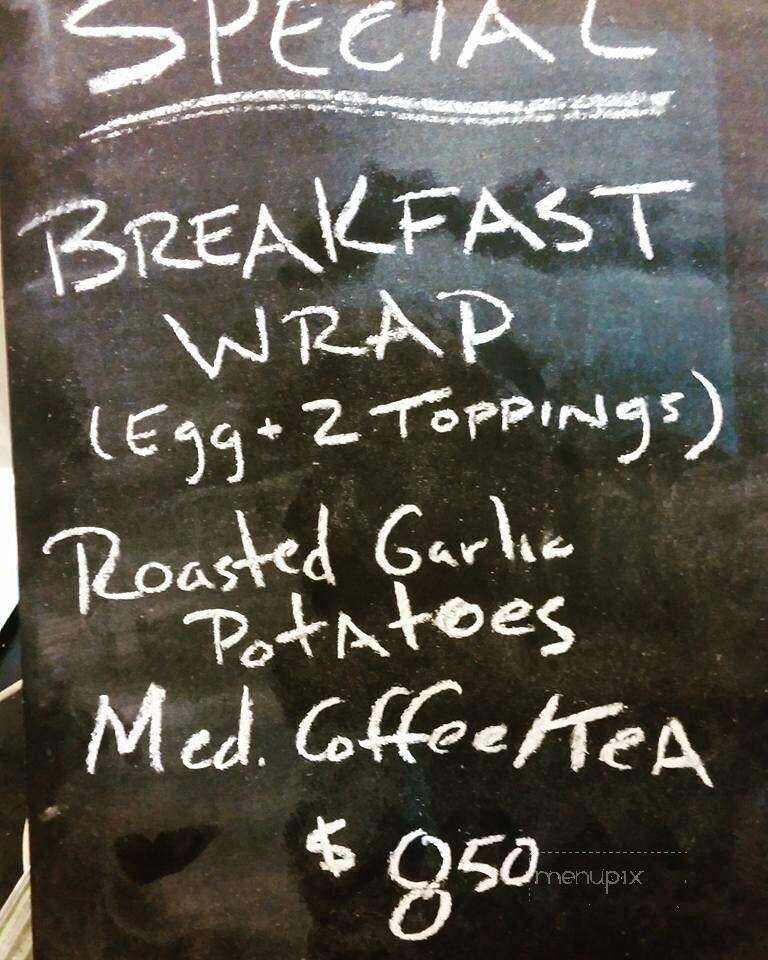 SPECIAL
BREAKFAST
WRAP
(Egg + 2 TOPPINgs)
Roasted Garlic
PotAtoes
Med. Coffee/TeA
$ 8 50
menupix